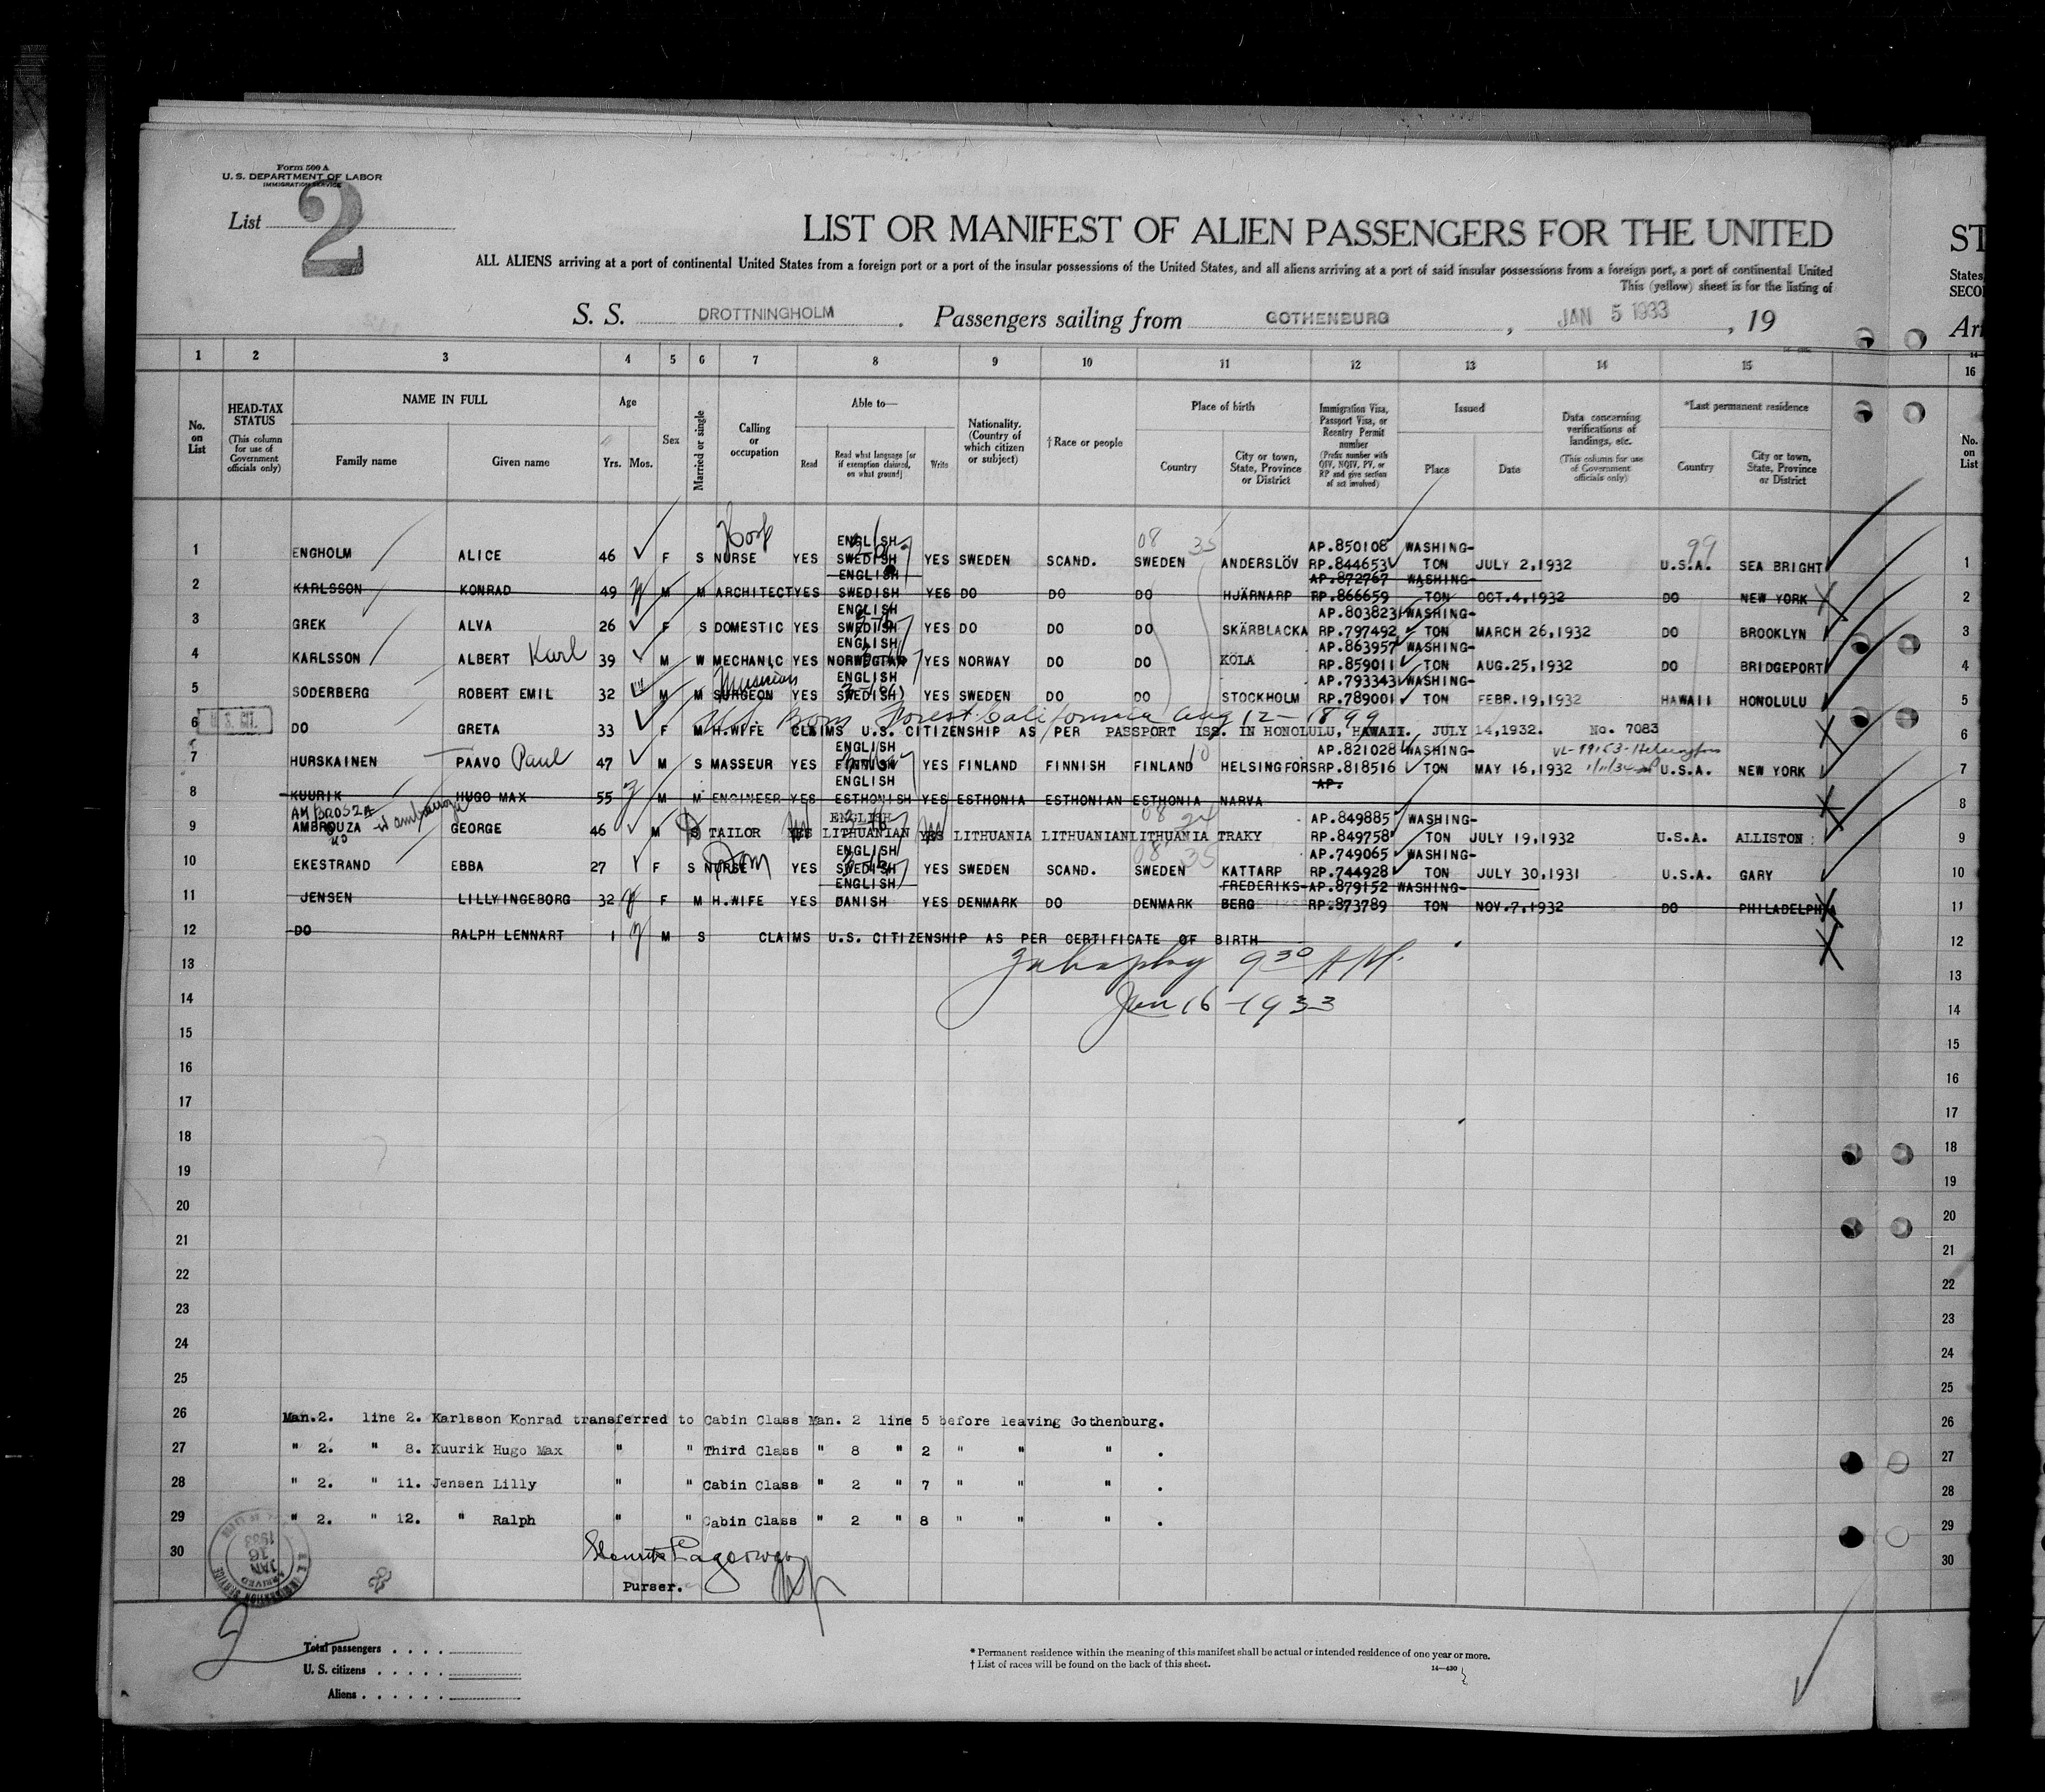 Form 500 A
U. S. DEPARTMENT OF LABOR
IMMIGRATION SERVICE
List 2
LIST OR MANIFEST OF ALIEN PASSENGERS FOR THE UNITED
ST
ALL ALIENS arriving at a port of continental United States from a foreign port or a port of the insular possessions of the United States, and all aliens arriving at a port of said insular possessions from a foreign port, a port of continental United
States,
This (yellow) sheet is for the listing of
SECO
S. S. DROTTNINGHOLM. Passengers sailing from GOTHENBURG, JAN 5 1933, 19
Arr
1 2 3 4 5 6 7 8 9 10 11 12 13 14 15 16
No. on List
HEAD-TAX STATUS (This column for use of Government officials only)
NAME IN FULL
Family name Given name
Age
Yrs. Mos.
Sex
Married or single
Calling or occupation
Able to—
Read
Read what language [or if exemption claimed, on what ground]
Write
Nationality. (Country of which citizen or subject)
† Race or people
Place of birth
Country
City or town, State, Province or District
Immigration Visa, Passport Visa, or Reentry Permit number
(Prefix number with QIV, NQIV, PV, or RP and give section of act involved)
Issued
Place Date
Data concerning verifications of landings, etc.
(This column for use of Government officials only)
*Last permanent residence
Country
City or town, State, Province or District
No. on List
Hosp ENGLISH 08 35 AP.850108 WASHING- 99
1 ENGHOLM ALICE 46 F S NURSE YES SWEDISH YES SWEDEN SCAND. SWEDEN ANDERSLÖV RP.844653 TON JULY 2,1932 U.S.A. SEA BRIGHT 1
ENGLISH AP.872767 WASHING-
2 KARLSSON KONRAD 49 M M ARCHITECT YES SWEDISH YES DO DO DO HJÄRNARP RP.866659 TON OCT.4,1932 DO NEW YORK 2
ENGLISH AP.803823 WASHING-
3 GREK ALVA 26 F S DOMESTIC YES SWEDISH YES DO DO DO SKÄRBLACKA RP.797492 TON MARCH 26,1932 DO BROOKLYN 3
ENGLISH AP.863957 WASHING-
4 KARLSSON ALBERT Karl 39 M W MECHANIC YES NORWEGIAN YES NORWAY DO DO KÖLA RP.859011 TON AUG.25,1932 DO BRIDGEPORT 4
Musician ENGLISH AP.793343 WASHING-
5 SÖDERBERG ROBERT EMIL 32 M M SURGEON YES SWEDISH YES SWEDEN DO DO STOCKHOLM RP.789001 TON FEBR.19,1932 HAWAII HONOLULU 5
U. S. CIT. Born Forest California Aug 12-1899
6 DO GRETA 33 F M H.WIFE CLAIMS U.S. CITIZENSHIP AS PER PASSPORT ISS. IN HONOLULU, HAWAII. JULY 14,1932. No. 7083 6
ENGLISH 10 AP.821028 WASHING-
7 HURSKAINEN PAAVO Paul 47 M S MASSEUR YES FINNISH YES FINLAND FINNISH FINLAND HELSINGFORS RP.818516 TON MAY 16,1932 U.S.A. NEW YORK 7
ENGLISH AP.
8 KUURIK HUGO MAX 55 M M ENGINEER YES ESTHONISH YES ESTHONIA ESTHONIAN ESTHONIA NARVA 8
AMBROSZA ENGLISH 08 24 AP.849885 WASHING-
9 AMBROUZA GEORGE 46 M S TAILOR YES LITHUANIAN YES LITHUANIA LITHUANIAN LITHUANIA TRAKY RP.849758 TON JULY 19,1932 U.S.A. ALLISTON 9
Dom ENGLISH 08 35 AP.749065 WASHING-
10 EKESTRAND EBBA 27 F S NURSE YES SWEDISH YES SWEDEN SCAND. SWEDEN KATTARP RP.744928 TON JULY 30,1931 U.S.A. GARY 10
ENGLISH FREDERIKS- AP.879152 WASHING-
11 JENSEN LILLY INGEBORG 32 F M H.WIFE YES DANISH YES DENMARK DO DENMARK BERG RP.873789 TON NOV.7,1932 DO PHILADELPHIA 11
12 DO RALPH LENNART 1 M S CLAIMS U.S. CITIZENSHIP AS PER CERTIFICATE OF BIRTH 12
13 9 30 A M. 13
14 Jan 16-1933 14
15 15
16 16
17 17
18 18
19 19
20 20
21 21
22 22
23 23
24 24
25 25
26 Man.2. line 2. Karlsson Konrad transferred to Cabin Class Man. 2 line 5 before leaving Gothenburg. 26
27 " 2. " 8. Kuurik Hugo Max " " Third Class " 8 " 2 " " " . 27
28 " 2. " 11. Jensen Lilly " " Cabin Class " 2 " 7 " " " . 28
29 " 2. " 12. " Ralph " " Cabin Class " 2 " 8 " " " . 29
30 30
JAN 16 1933
Purser.
Total passengers . . . .
U. S. citizens . . . . .
Aliens . . . . . .
* Permanent residence within the meaning of this manifest shall be actual or intended residence of one year or more.
† List of races will be found on the back of this sheet.
14—430